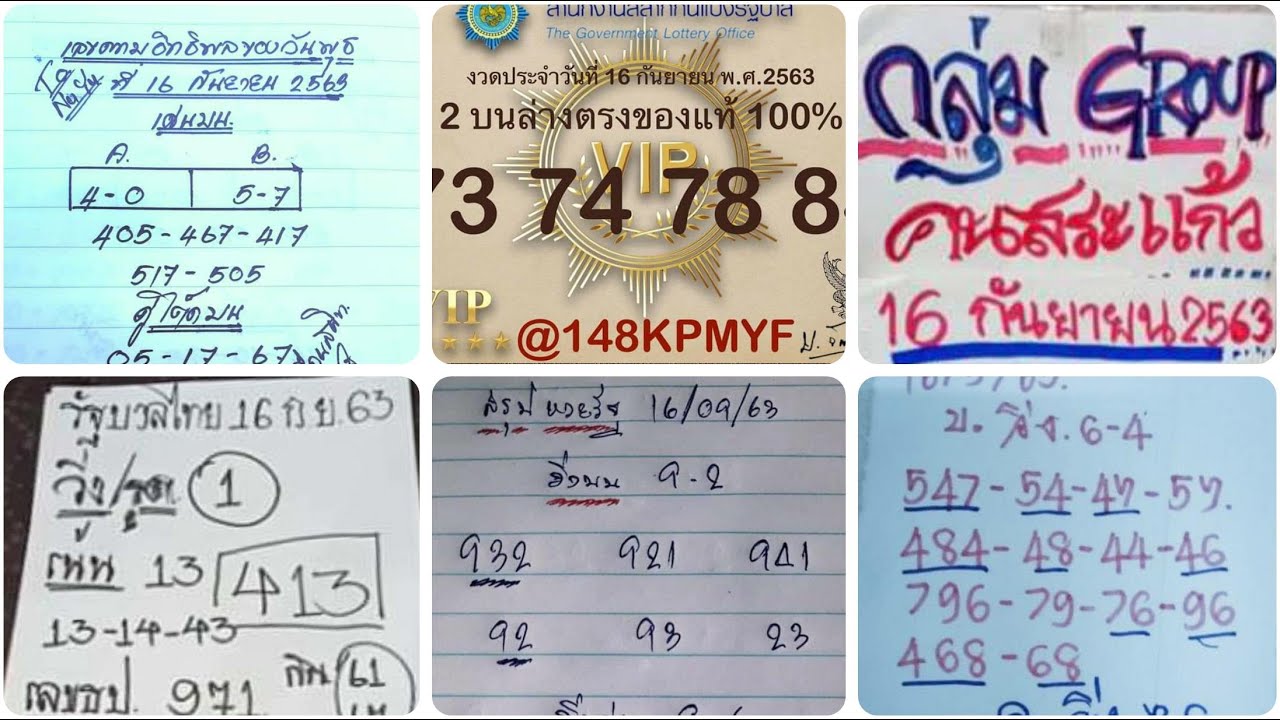 เลขตามอิทธิพลของวันพุธ
ที่ 16 กันยายน 2563
เด่นบน.
A. B.
4-0 5-7
405-467-417
517-505
คู่โต๊ดบน
05-17-67
สำนักงานสลากกินแบ่งรัฐบาล
The Government Lottery Office
งวดประจำวันที่ 16 กันยายน พ.ศ.2563
2 บนล่างตรงของแท้ 100%
VIP
73 74 78 8
VIP
@148KPMYF
กลุ่ม GROUP
คนสระแก้ว
16 กันยายน 2563
รัฐบาลไทย 16 ก.ย. 63
วิ่ง/รูด 1
เน้น 13 413
13-14-43
เลขธป. 971 61
สรุป หวยรัฐ 16/09/63
วิ่งบน 9-2
932 921 941
92 93 23
บ. วิ่ง. 6-4
547-54-47-57.
484-48-44-46
796-79-76-96
468-68